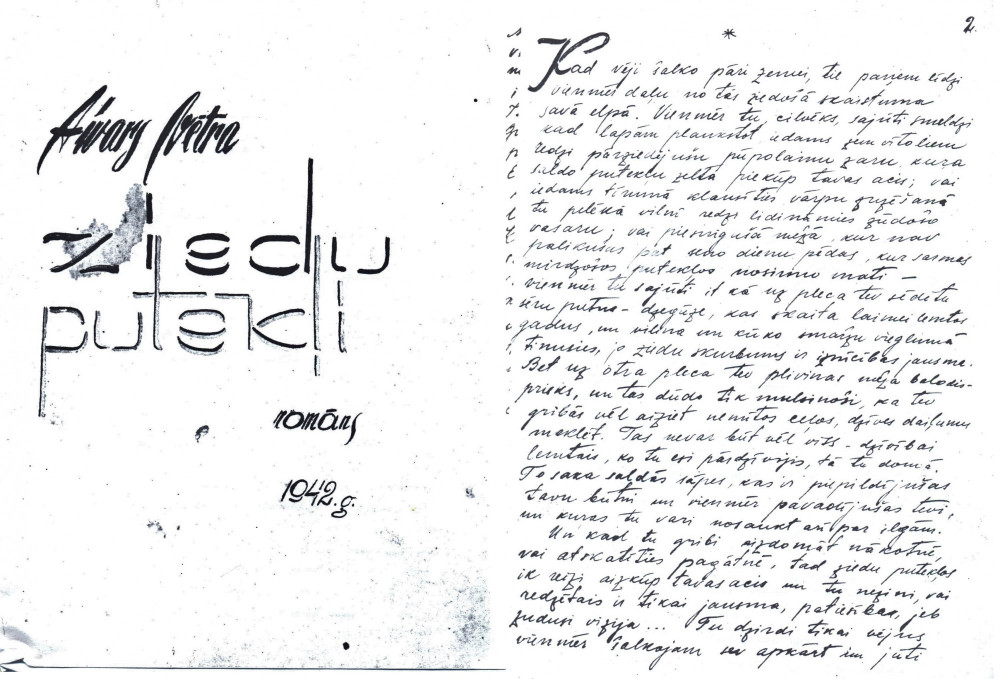 Aivars Vētra
ziedu
putekļi
romāns
1942.g.
2.
*
Kad vēji šalko pāri zemei, tie paņem līdzi
vienmēr daļu no tās ziedošā skaistuma
savā elpā. Vienmēr tu, cilvēks, sajūti smeldzi
kad lapām plaukstot, iedams zem vītoliem
redzi pārziedējušu pūpolainu zaru, kura
saldo putekļu zelts piekūp tavas acis; vai
iedams tīrumā klausīties vārpu
tu pelēkā vilnī redzi līdināmies ziedošo
vasaru; vai piesnigušā mežā, kur nav
palikušas pat savo dienu pēdas, kur sarmas
mirdzošos putekļos nosirmo mati —
vienmēr tu sajūti it kā uz pleca tev sēdētu
sēru putns - dzeguze, kas skaita laimei lemtos
gadus, un vilina un kūko smaržu vieglumā
tinusies, jo ziedu skurbums ir iznīcības jausma.
Bet uz otra pleca tev plivinas meža balodis-
prieks, un tas dūdo tik mulsinoši, ka tev
gribas vēl aiziet nemītos ceļos, dzīves daiļumu
meklēt. Tas nevar būt vēl viss - dzīvībai
lemtais, ko tu esi pārdzīvojis, tā tu domā.
To saka saldās sāpes, kas ir piepildījušas
tavu būtni un vienmēr pavadījušas tevi,
un kuras tu vari nosaukt arī par ilgām.
Un kad tu gribi aizdomāt nākotnē,
vai atskatīties pagātnē, tad ziedu putekļos
ik reizi aizkūp tavas acis un tu nezini, vai
redzētais ir tikai jausma, patiesība, jeb
zudusi vīzija... Tu dzirdi tikai vējus
vienmēr šalkojam sev apkārt un jūti